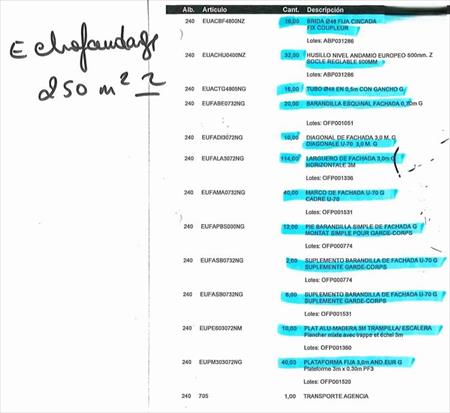 Echafaudage
250 m² 2
Alb. Artículo Cant. Descripción
240 EUACBF4800NZ 16,00 BRIDA Ø48 FIJA CINCADA
FIX COUPLEUR
Lotes: ABP031286
240 EUACHU0400NZ 32,00 HUSILLO NIVEL ANDAMIO EUROPEO 500mm. Z
SOCLE REGLABLE 500MM
Lotes: ABP031286
240 EUACTG4805NG 16,00 TUBO Ø48 EN 0,5m CON GANCHO G
240 EUFABE0732NG 20,00 BARANDILLA ESQUINAL FACHADA 0,70m G
Lotes: OFP001051
240 EUFADI3072NG 10,00 DIAGONAL DE FACHADA 3,0 M. G
DIAGONALE U-70 3,0 M. G
240 EUFALA3072NG 114,00 LARGUERO DE FACHADA 3,0m G
HORIZONTALE 3M
Lotes: OFP001336
240 EUFAMA0732NG 40,00 MARCO DE FACHADA U-70 G
CADRE U-70
Lotes: OFP001531
240 EUFAPBS000NG 12,00 PIE BARANDILLA SIMPLE DE FACHADA G
MONTAT SIMPLE POUR GARDE-CORPS
Lotes: OFP000774
240 EUFASB0732NG 2,00 SUPLEMENTO BARANDILLA DE FACHADA U-70 G
SUPLEMENTE GARDE-CORPS
Lotes: OFP000774
240 EUFASB0732NG 6,00 SUPLEMENTO BARANDILLA DE FACHADA U-70 G
SUPLEMENTE GARDE-CORPS
Lotes: OFP001531
240 EUPE603072NM 10,00 PLAT ALU-MADERA 3M TRAMPILLA/ ESCALERA
Plancher mixte avec trappe et échel 3m
Lotes: OFP001360
240 EUPM303072NG 40,00 PLATAFORMA FIJA 3,0m AND.EUR G
Plateforme 3m x 0.30m PF3
Lotes: OFP001520
240 705 1,00 TRANSPORTE AGENCIA